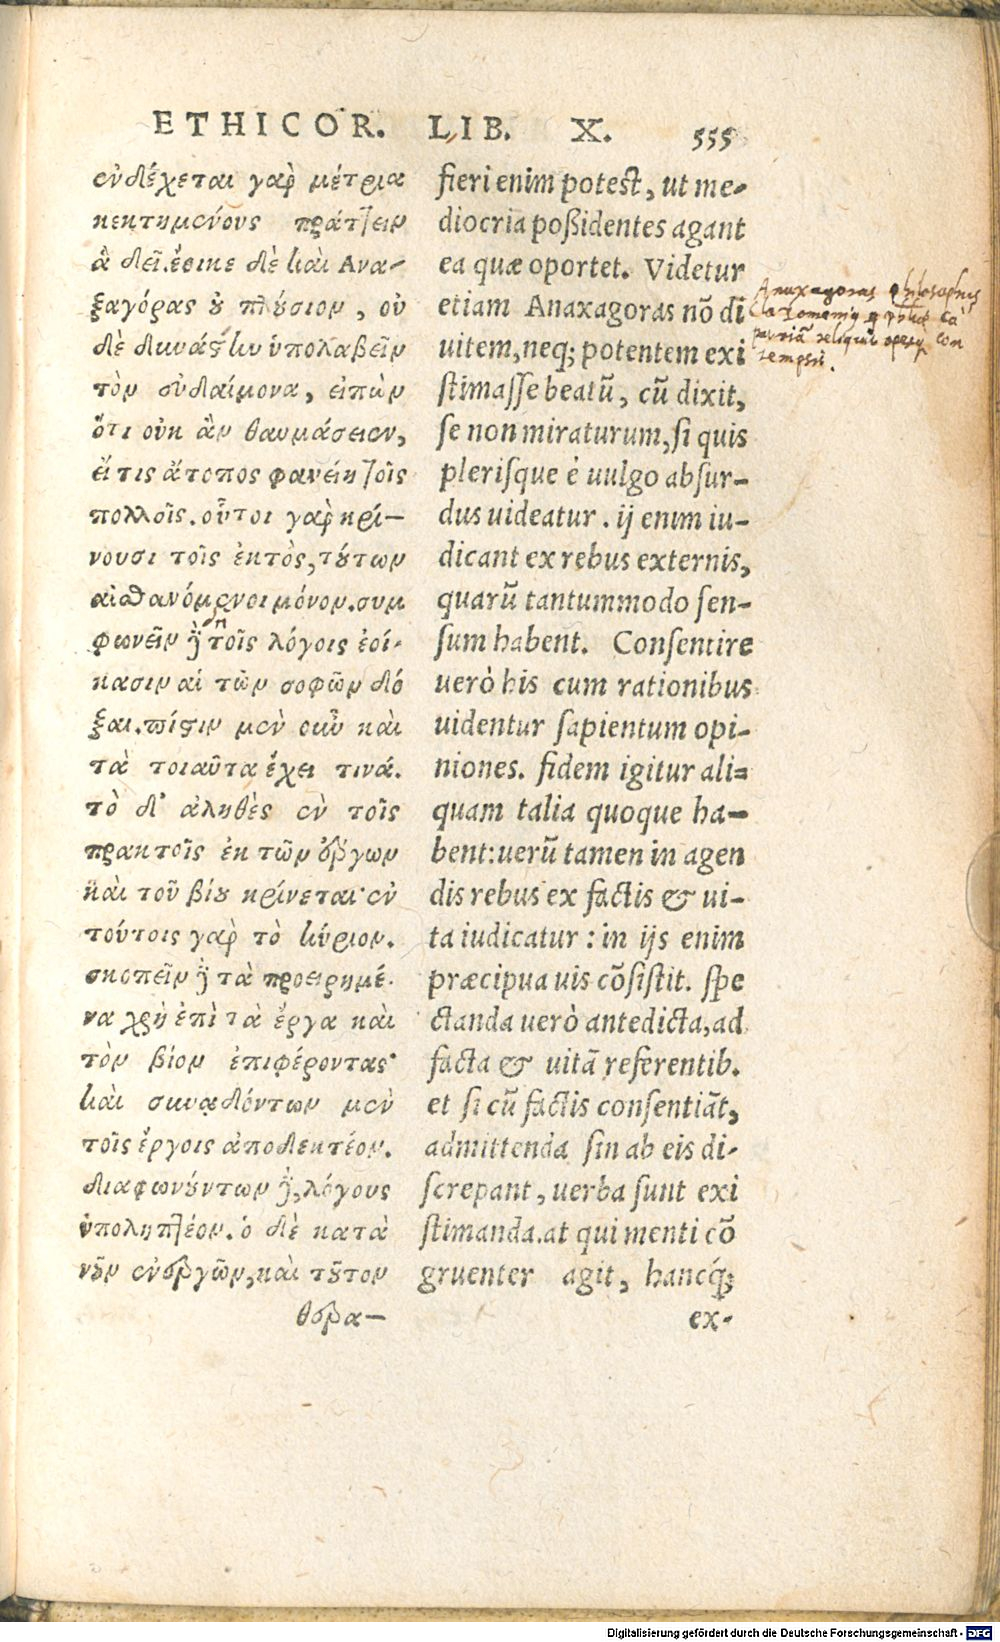 ETHICOR. LIB. X. 555
ἐνδέχεται γαρ̀ μέτρια
κεκτημένους πράτ]ειν
ἃ δεῖ. ἔοικε δὲ καὶ Ανα-
ξαγόρας ȣ̓ πλȣ́σιον, οὐ
δὲ δυνάστην ὑπολαβεῖν
τὸν εὐδαίμονα, εἰπὼν
ὅτι οὐκ ἂν θαυμάσειεν,
εἴ τις ἄτοπος φανείη τοῖς
πολλοῖς. οὗτοι γαρ̀ κρί-
νουσι τοῖς ἐκτὸς, τȣ́των
αἰσθανόμενοι μόνον. συμ
φωνεῖν δὴ τοῖς λόγοις ἐοί-
κασιν αἱ τῶν σοφῶν δό
ξαι. πίστιν μὲν οὖν καὶ
τὰ τοιαῦτα ἔχει τινά.
τὸ δ' ἀληθὲς ἐν τοῖς
πρακτοῖς ἐκ τῶν ἔργων
καὶ τοῦ βίȣ κρίνεται· ἐν
τούτοις γαρ̀ τὸ κύριον.
σκοπεῖν δὴ τὰ προειρημέ-
να χρὴ ἐπὶ τὰ ἔργα καὶ
τὸν βίον ἐπιφέροντας·
καὶ συναδόντων μὲν
τοῖς ἔργοις ἀποδεκτέον.
διαφωνȣ́ντων δὲ, λόγους
ὑποληπτέον. ὁ δὲ κατὰ
νȣ͂ν ἐνεργῶν, καὶ τȣ͂τον
θερα-
fieri enim potest, ut me-
diocria poßidentes agant
ea quæ oportet. Videtur
etiam Anaxagoras nō di
uitem, neq; potentem exi
stimasse beatū, cū dixit,
se non miraturum, si quis
plerisque è uulgo absur-
dus uideatur. ij enim iu-
dicant ex rebus externis,
quarū tantummodo sen-
sum habent. Consentire
uerò his cum rationibus
uidentur sapientum opi-
niones. fidem igitur ali-
quam talia quoque ha-
bent: uerū tamen in agen
dis rebus ex factis & ui-
ta iudicatur: in ijs enim
præcipua uis cōsistit. spe
ctanda uerò antedicta, ad
facta & uitā referentib.
et si cū factis consentiāt,
admittenda sin ab eis di-
screpant, uerba sunt exi
stimanda. at qui menti cō
gruenter agit, hancq́;
ex-
Anaxagoras philosophus
patriā
tempsit.
Digitalisierung gefördert durch die Deutsche Forschungsgemeinschaft - DFG